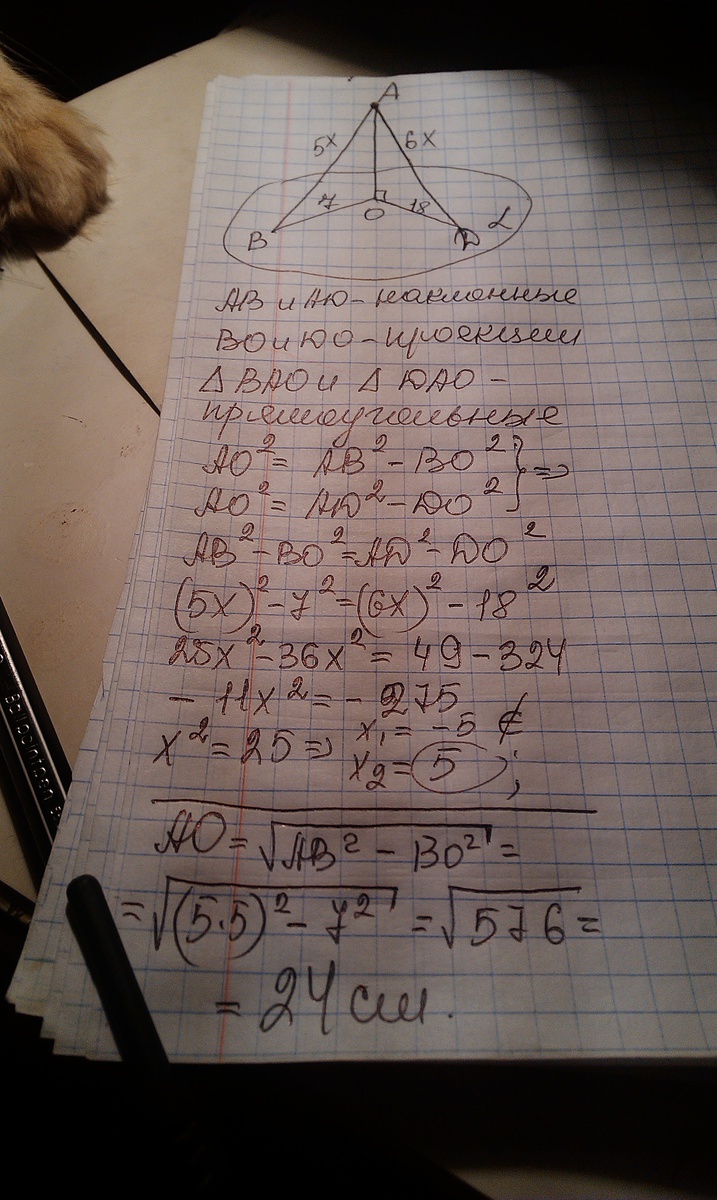 A
5x 6x
7 18
B O D α
AB и AD - наклонные
BO и DO - проекции
△ BAO и △ DAO -
прямоугольные
AO² = AB² - BO² } ⇒
AO² = AD² - DO²
AB² - BO² = AD² - DO²
(5x)² - 7² = (6x)² - 18²
25x² - 36x² = 49 - 324
- 11x² = - 275
x² = 25 ⇒ x₁ = -5 ∉
x₂ = 5 ;
AO = √AB² - BO² =
= √(5·5)² - 7² = √576 =
= 24 см.
Ballpointpen